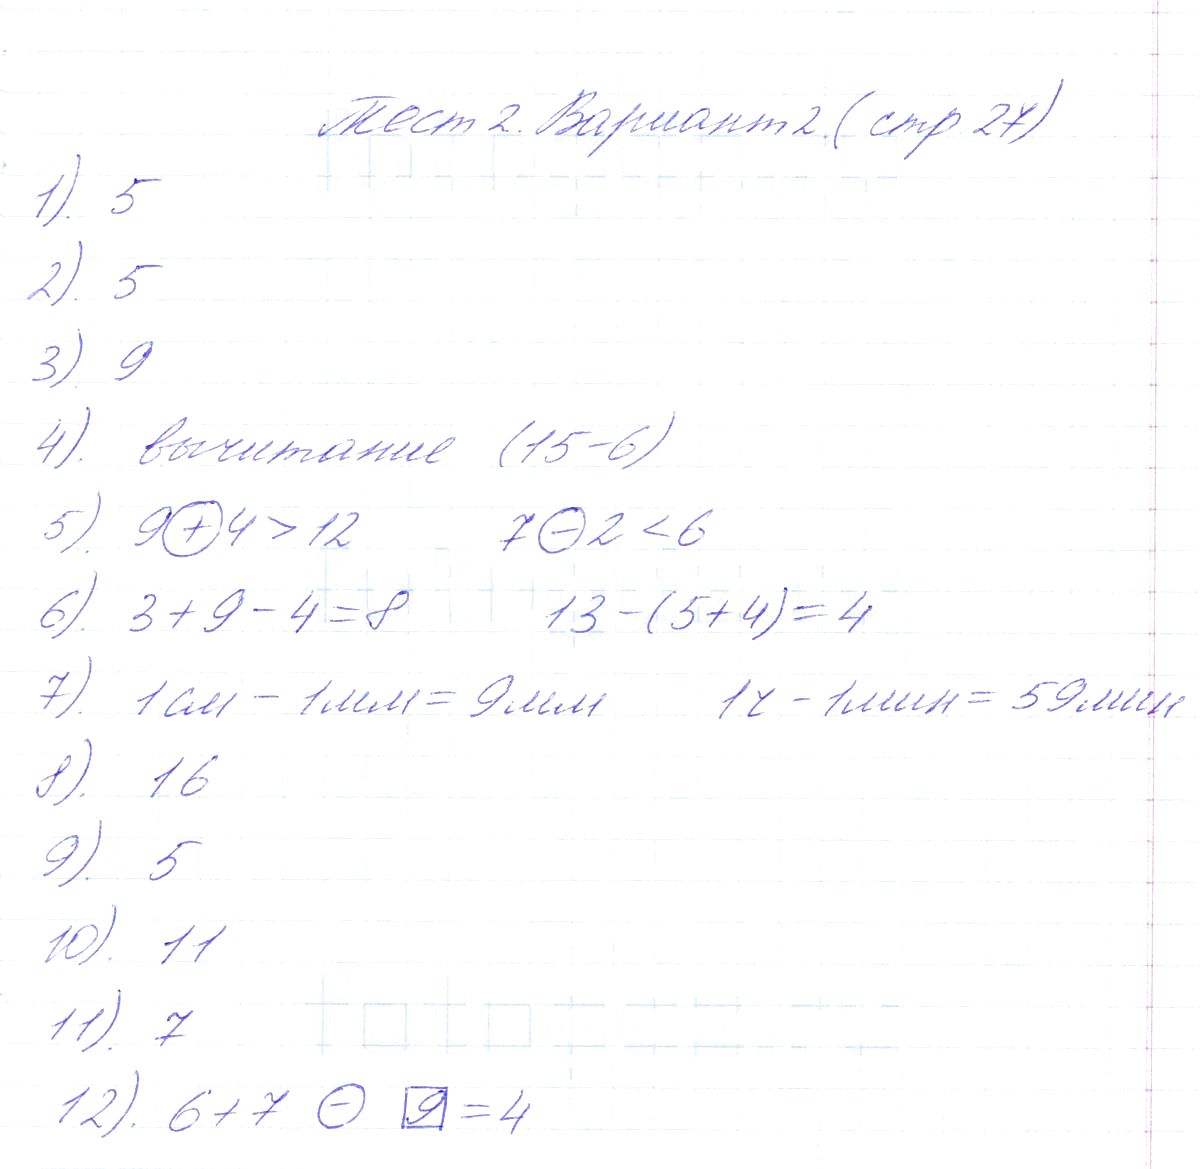 Тест 2. Вариант 2. (стр 27)
1). 5
2). 5
3) 9
4). вычитание (15-6)
5). 9+4>12 7-2<6
6). 3+9-4=8 13-(5+4)=4
7). 1см - 1мм = 9мм 1ч - 1мин = 59мин
8). 16
9). 5
10). 11
11). 7
12). 6+7 - 9 = 4